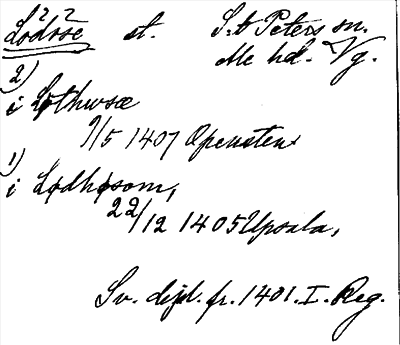 Lödöse st. S:t Peters sn.
Ale hd. Vg.
2)
i Løthwsæ
9/5 1407 Opensten
1)
i Lødhøsom,
22/12 1405 Upsala,
Sv. dipl. fr. 1401. I. Reg.